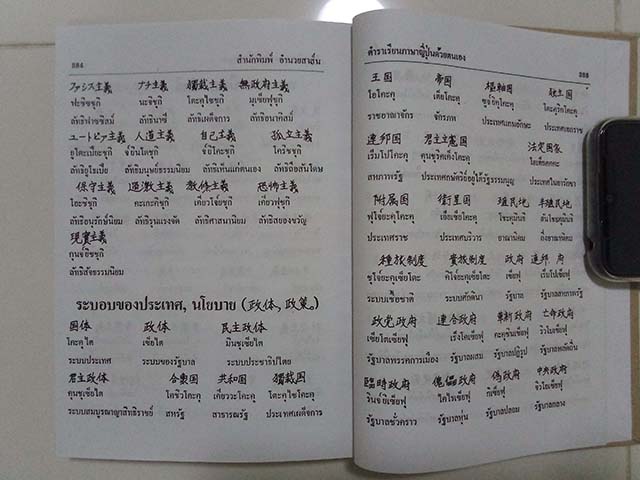 884 สำนักพิมพ์ อำนวยสาส์น
ファシス主義 ナチ主義 獨裁主義 無政府主義
ฟะชิซชุกิ นะจิชุกิ โดะคุไซชุกิ มุเซียฟุชุกิ
ลัทธิฟาซซิสม์ ลัทธินาซี ลัทธิเผด็จการ ลัทธิอนาคิสม์
ユートピア主義 人道主義 自己主義 孤立主義
ยูโตะเปียะชุกิ จ์อินโดชุกิ จ์อิโคะชุกิ โคริซชุกิ
ลัทธิยูโรเปีย ลัทธิมนุษย์ธรรมนิยม ลัทธิเห็นแก่ตนเอง ลัทธิถือสันโดษ
保守主義 過激主義 教條主義 恐怖主義
โฮะชิชุกิ คะเกะกิชุกิ เคียวโจ้ยชุกิ เคียวฟุชุกิ
ลัทธิอนุรักษ์นิยม ลัทธิรุนแรงจัด ลัทธิศาสนานิยม ลัทธิสยองขวัญ
現實主義
กุนจ์อิชชุกิ
ลัทธิสัจธรรมนิยม
ระบอบของประเทศ, นโยบาย (政体, 政策)
国体 政体 民主政体
โคะคุไต เซียไต มินชุเซียไต
ระบบประเทศ ระบบของรัฐบาล ระบบประชาธิปไตย
君主政体 合衆国 共和国 獨裁国
คุนชุเซียไต โคชิวโคะคุ เคียววะโคะคุ โดะคุไซโคะคุ
ระบบสมบูรณาญาสิทธิราชย์ สหรัฐ สาธารณรัฐ ประเทศเผด็จการ
ตำราเรียนภาษาญี่ปุ่นด้วยตนเอง 885
王国 帝国 樞軸国 独立国
โอโคะคุ เตียโคะคุ ซูจ์อิคุโคะคุ โดะคุริทโคะคุ
ราชอาณาจักร จักรภพ ประเทศแกนอักษะ ประเทศเอกราช
連邦国 君主立憲国 法定国家
เร็มโปโคะคุ คุนชุริคเค็งโคะคุ
สหภาพรัฐ ประเทศกษัตริย์อยู่ใต้รัฐธรรมนูญ
附属国 衛星国 殖民地 半殖民地
ฟุโจ้ยะคุโคะคุ เอียเซียโคะคุ โชะคุมินจิ ฮันโชะคุมินจิ
ประเทศราช ประเทศบริวาร อาณานิคม กึ่งอาณานิคม
種族制度 貴族制度 政府 連邦政府
ชุโจ้ยะคุเซียโดะ คิโจ้ยะคุเซียโดะ เซียฟุ เร็มโปเซียฟุ
ระบบเชื้อชาติ ระบบศักดินา รัฐบาล รัฐบาลสหภาพรัฐ
政党政府 連合政府 革新政府 亡命政府
เซียโตเซียฟุ เร็งโงเซียฟุ คะคุชินเซียฟุ โบเมียเซียฟุ
รัฐบาลพรรคการเมือง รัฐบาลผสม รัฐบาลปฏิรูป รัฐบาลพลัดถิ่น
臨時政府 傀儡政府 偽政府 中央政府
รินจ์อิเซียฟุ ไคไรเซียฟุ กิเซียฟุ จิวโอเซียฟุ
รัฐบาลชั่วคราว รัฐบาลหุ่น รัฐบาลปลอม รัฐบาลกลาง